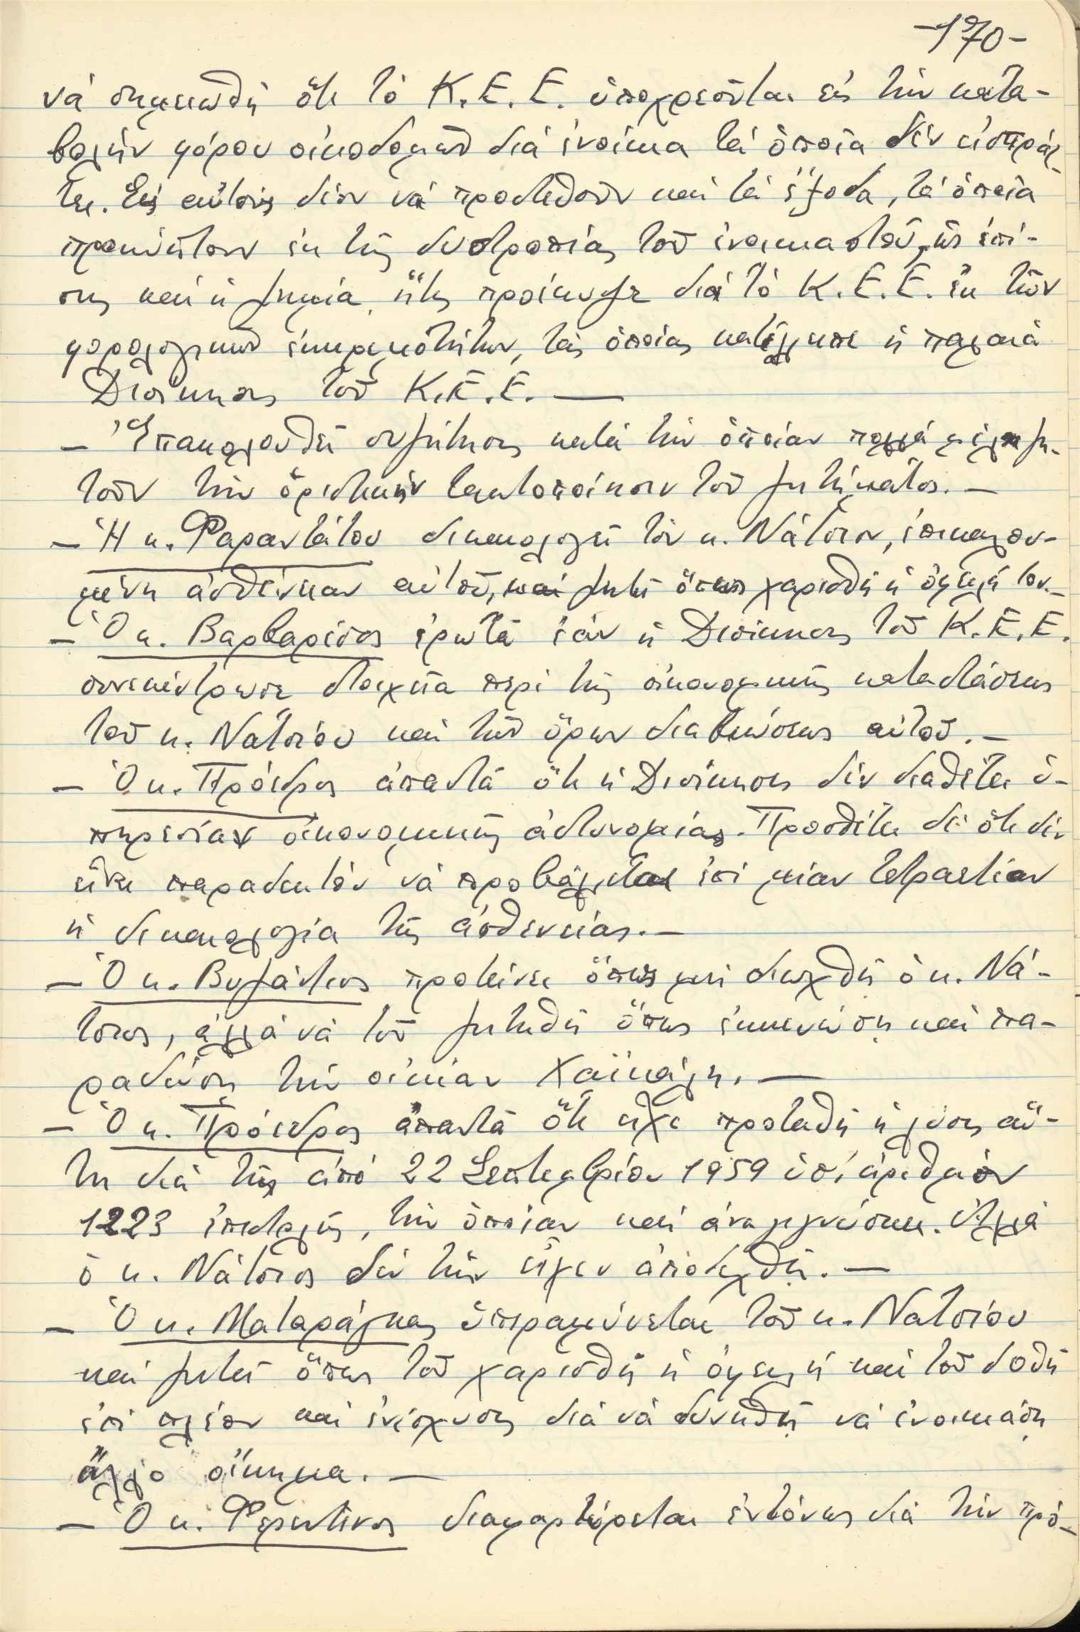 -170-
νά σημειωθῇ ὅτι τό Κ.Ε.Ε. ὑποχρεοῦται εἰς τήν κατα-
βολήν φόρου οἰκοδομῶν διά ἐνοίκια τά ὁποῖα δέν εἰσπράτ-
τει. Εἰς αὐτούς δέον νά προστεθοῦν καί τά ἔξοδα, τά ὁποῖα
προκύπτουν ἐκ τῆς δυστροπίας τοῦ ἐνοικιαστοῦ, ὡς ἐπί-
σης καί ἡ ζημία, ἥτις προέκυψε διά τό Κ.Ε.Ε. ἐκ τῶν
φορολογικῶν ἐκκρεμοτήτων, τάς ὁποίας κατέλειπε ἡ παλαιά
Διοίκησις τοῦ Κ.Ε.Ε. —
- Ἐπακολουθεῖ συζήτησις κατά τήν ὁποίαν πολλά μέλη ζη-
τοῦν τήν ὁριστικήν τακτοποίησιν τοῦ ζητήματος. —
- Ἡ κ. Φαραντάτου δικαιολογεῖ τόν κ. Νάτσιον, ἐπικαλου-
μένη ἀσθένειαν αὐτοῦ, καί ζητεῖ ὅπως χαρισθῇ ἡ ὀφειλή του. —
- Ὁ κ. Βαρβαρέσος ἐρωτᾶ ἐάν ἡ Διοίκησις τοῦ Κ.Ε.Ε.
συνεκέντρωσε στοιχεῖα περί τῆς οἰκονομικῆς καταστάσεως
τοῦ κ. Νατσίου καί τῶν ὅρων διαβιώσεως αὐτοῦ. —
- Ὁ κ. Πρόεδρος ἀπαντᾶ ὅτι ἡ Διοίκησις δέν διαθέτει ὑ-
πηρεσίαν οἰκονομικῆς ἀστυνομίας. Προσθέτει δέ ὅτι δέν
εἶναι παραδεκτόν νά προβάλεται ἐπί μίαν τετραετίαν
ἡ δικαιολογία τῆς ἀσθενείας. —
- Ὁ κ. Βυζάντιος προτείνει ὅπως μή διωχθῇ ὁ κ. Νά-
τσιος, ἀλλά νά τοῦ ζητηθῇ ὅπως ἐκκενώσῃ καί πα-
ραδώσῃ τήν οἰκίαν Χαϊκάλη. —
- Ὁ κ. Πρόεδρος ἀπαντᾶ ὅτι εἶχε προταθῇ ἡ λύσις αὐ-
τη διά τῆς ἀπό 22 Σεπτεμβρίου 1959 ὑπ' ἀριθμόν
1223 ἐπιστολῆς, τήν ὁποίαν καί ἀναγιγνώσκει. Ἀλλά
ὁ κ. Νάτσιος δέν τήν εἶχεν ἀποδεχθῇ. —
- Ὁ κ. Ματαράγκας ὑπεραμύνεται τοῦ κ. Νατσίου
καί ζητεῖ ὅπως τοῦ χαρισθῇ ἡ ὀφειλή καί τοῦ δοθῇ
ἐπί πλέον καί ἐνίσχυσις διά νά δυνηθῇ νά ἐνοικιάσῃ
ἄλλο οἴκημα. —
- Ὁ κ. διαμαρτύρεται ἐντόνως διά τήν πρό-